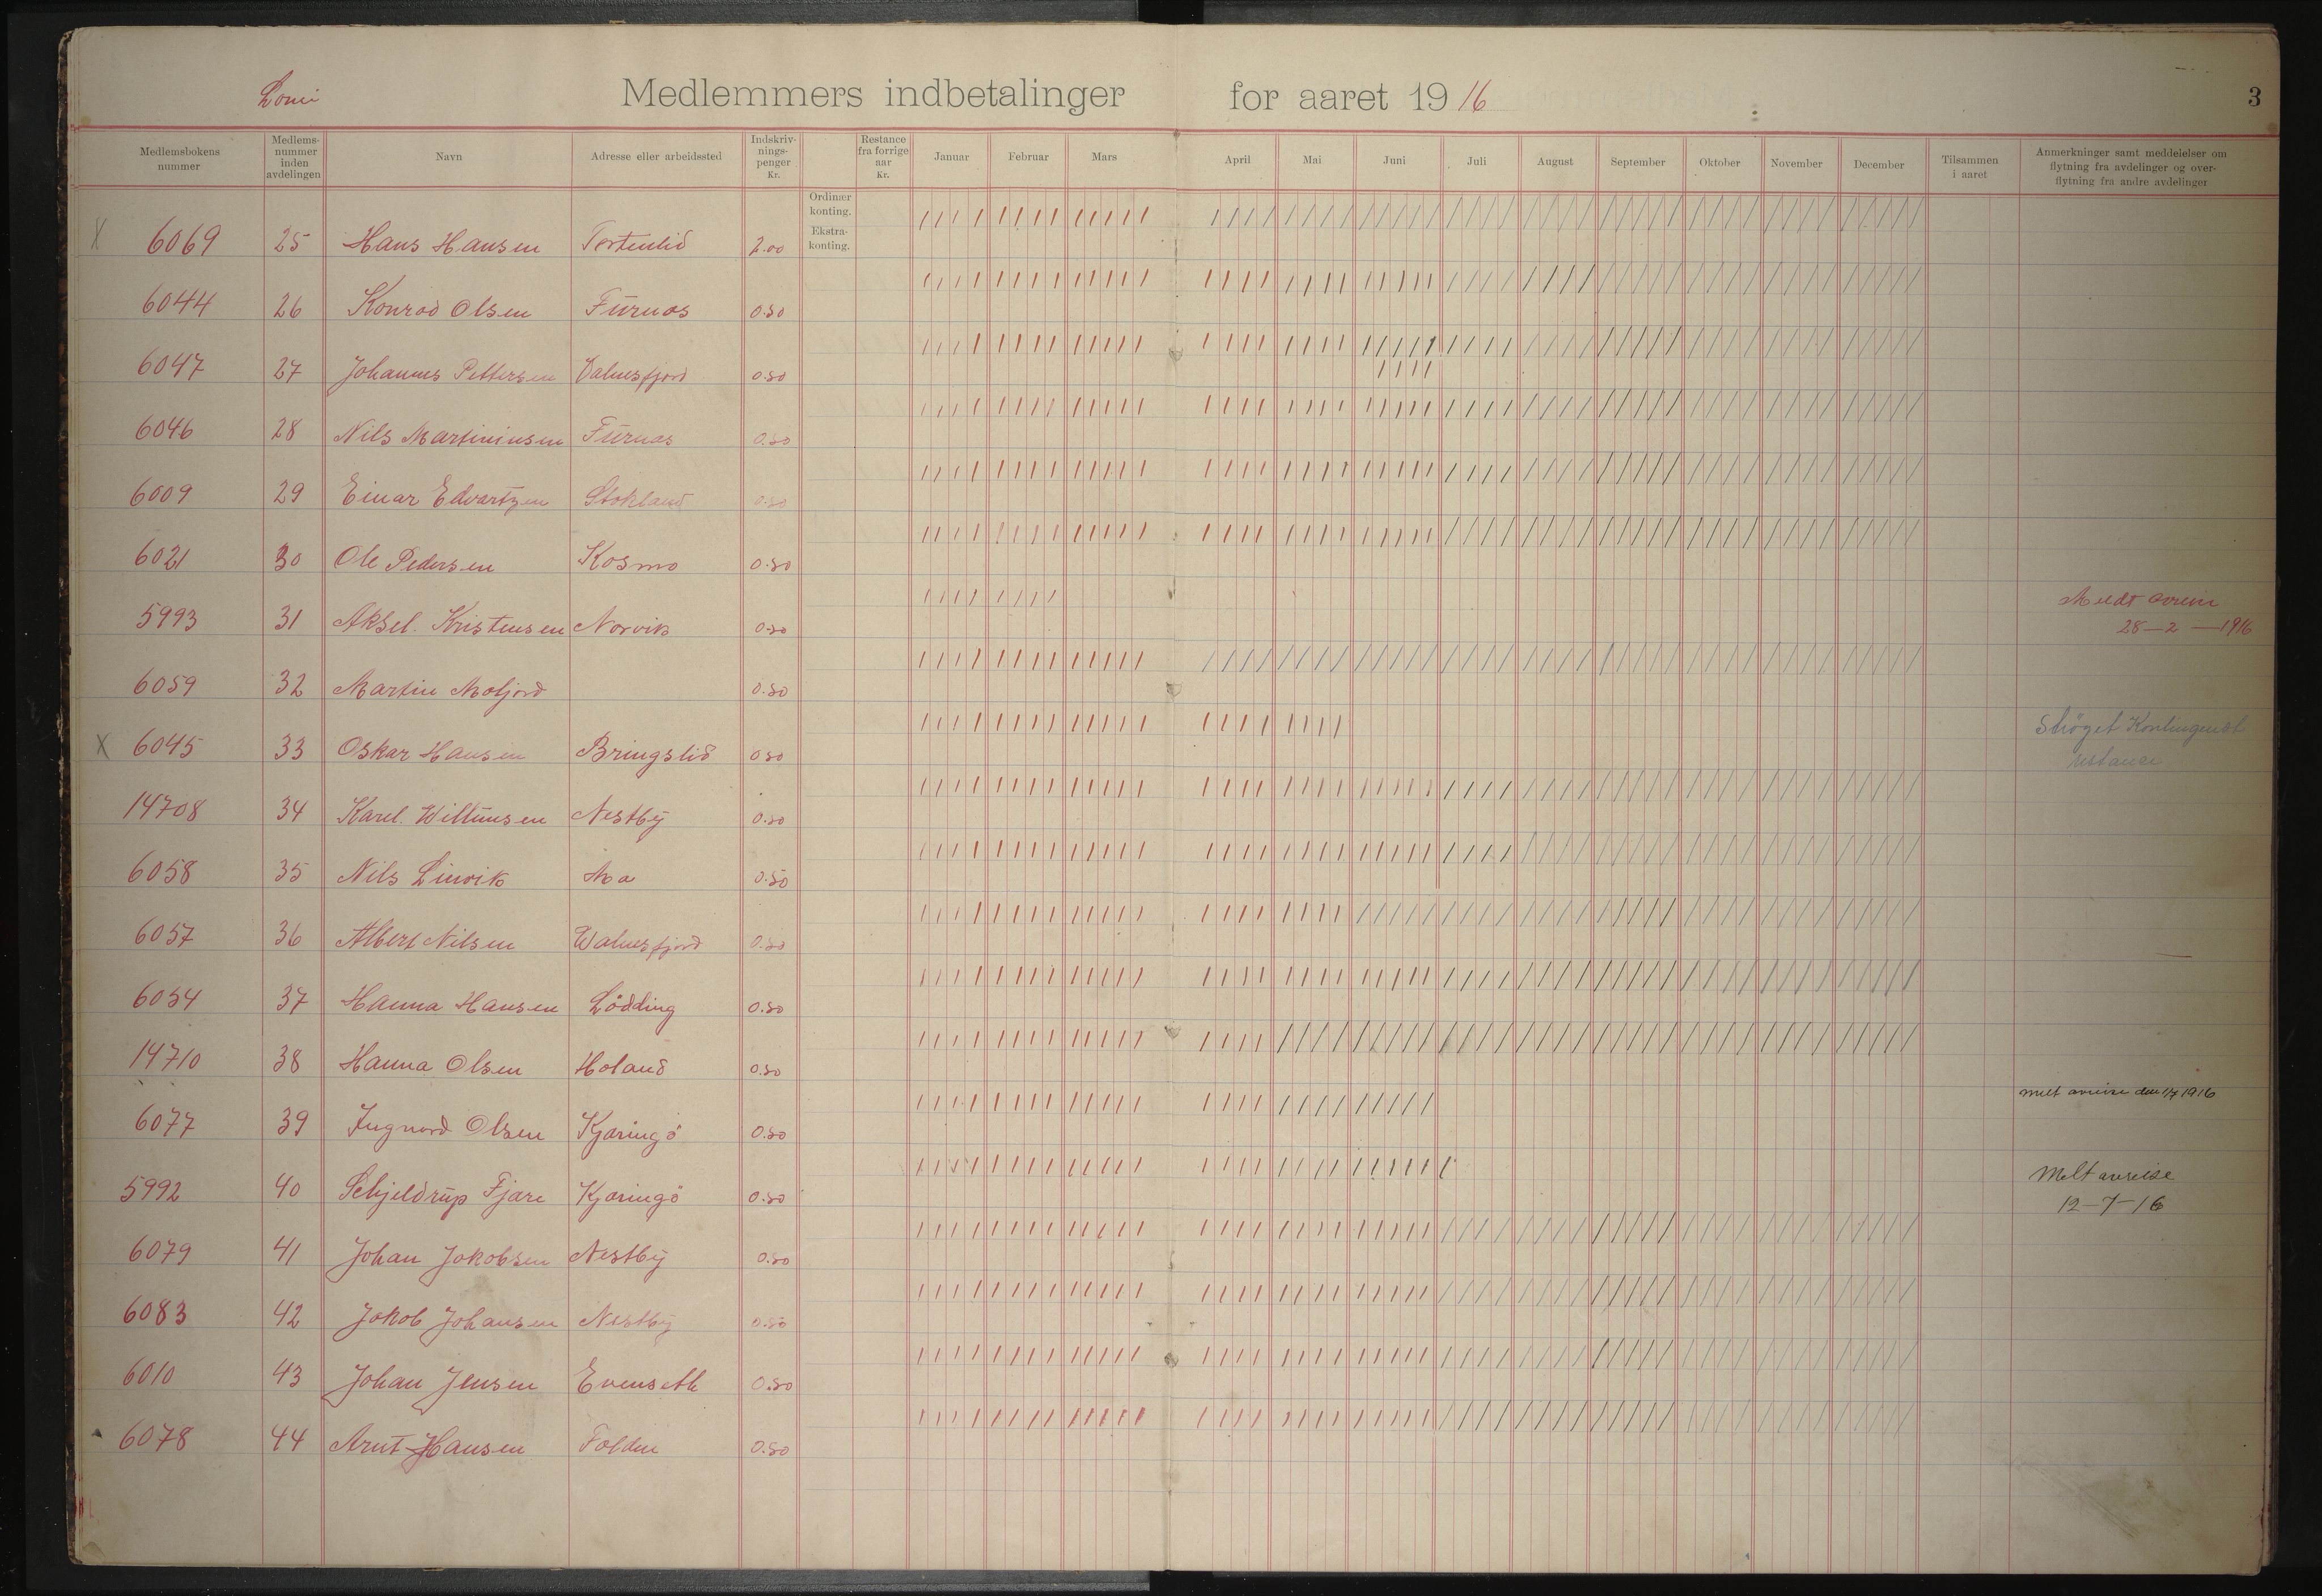 Lomi Medlemmers indbetalinger for aaret 1916 3
Medlemsbokens nummer Medlems-nummer inden avdelingen Navn Adresse eller arbeidssted Indskriv-nings-penger Kr. Restance fra forrige aar Kr. Januar Februar Mars April Mai Juni Juli August September Oktober November December Tilsammen i aaret Anmerkninger samt meddelelser om flytning fra avdelinger og over-flytning fra andre avdelinger
Ordinær konting.
Ekstra-konting.
X 6069 25 Hans Hansen Tortenlid 2.00
6044 26 Konrad Olsen Furnes 0.50
6047 27 Johannes Pettersen Valnesfjord 0.50
6046 28 Nils Martiniusen Furnes 0.50
6009 29 Einar Edvartzen Stokland 0.50
6021 30 Ole Pedersen Kosmo 0.50
5993 31 Aksel. Kristensen Norvik 0.50 Meldt avreise
28-2-1916
6059 32 Martin Mofjord 0.50
X 6045 33 Oskar Hansen Bringslid 0.50 Strøget Kontingent
restance
14708 34 Karel. Willumsen Nestby 0.50
6058 35 Nils Linvik Mo 0.50
6057 36 Albert Nilsen Walnesfjord 0.50
6054 37 Hanna Hansen Lødding 0.50
14710 38 Hanna Olsen Holand 0.50
6077 39 Ingvard Olsen Kjæringø 0.50 melt avreise den 1/7 1916
5992 40 Schjeldrup Fjære Kjæringø 0.50 Melt avreise
12-7-16
6079 41 Johan Jakobsen Nestby 0.50
6083 42 Jakob Johansen Nestby 0.50
6010 43 Johan Jensen Evenseth 0.50
6078 44 Arnt Hansen Folden 0.50